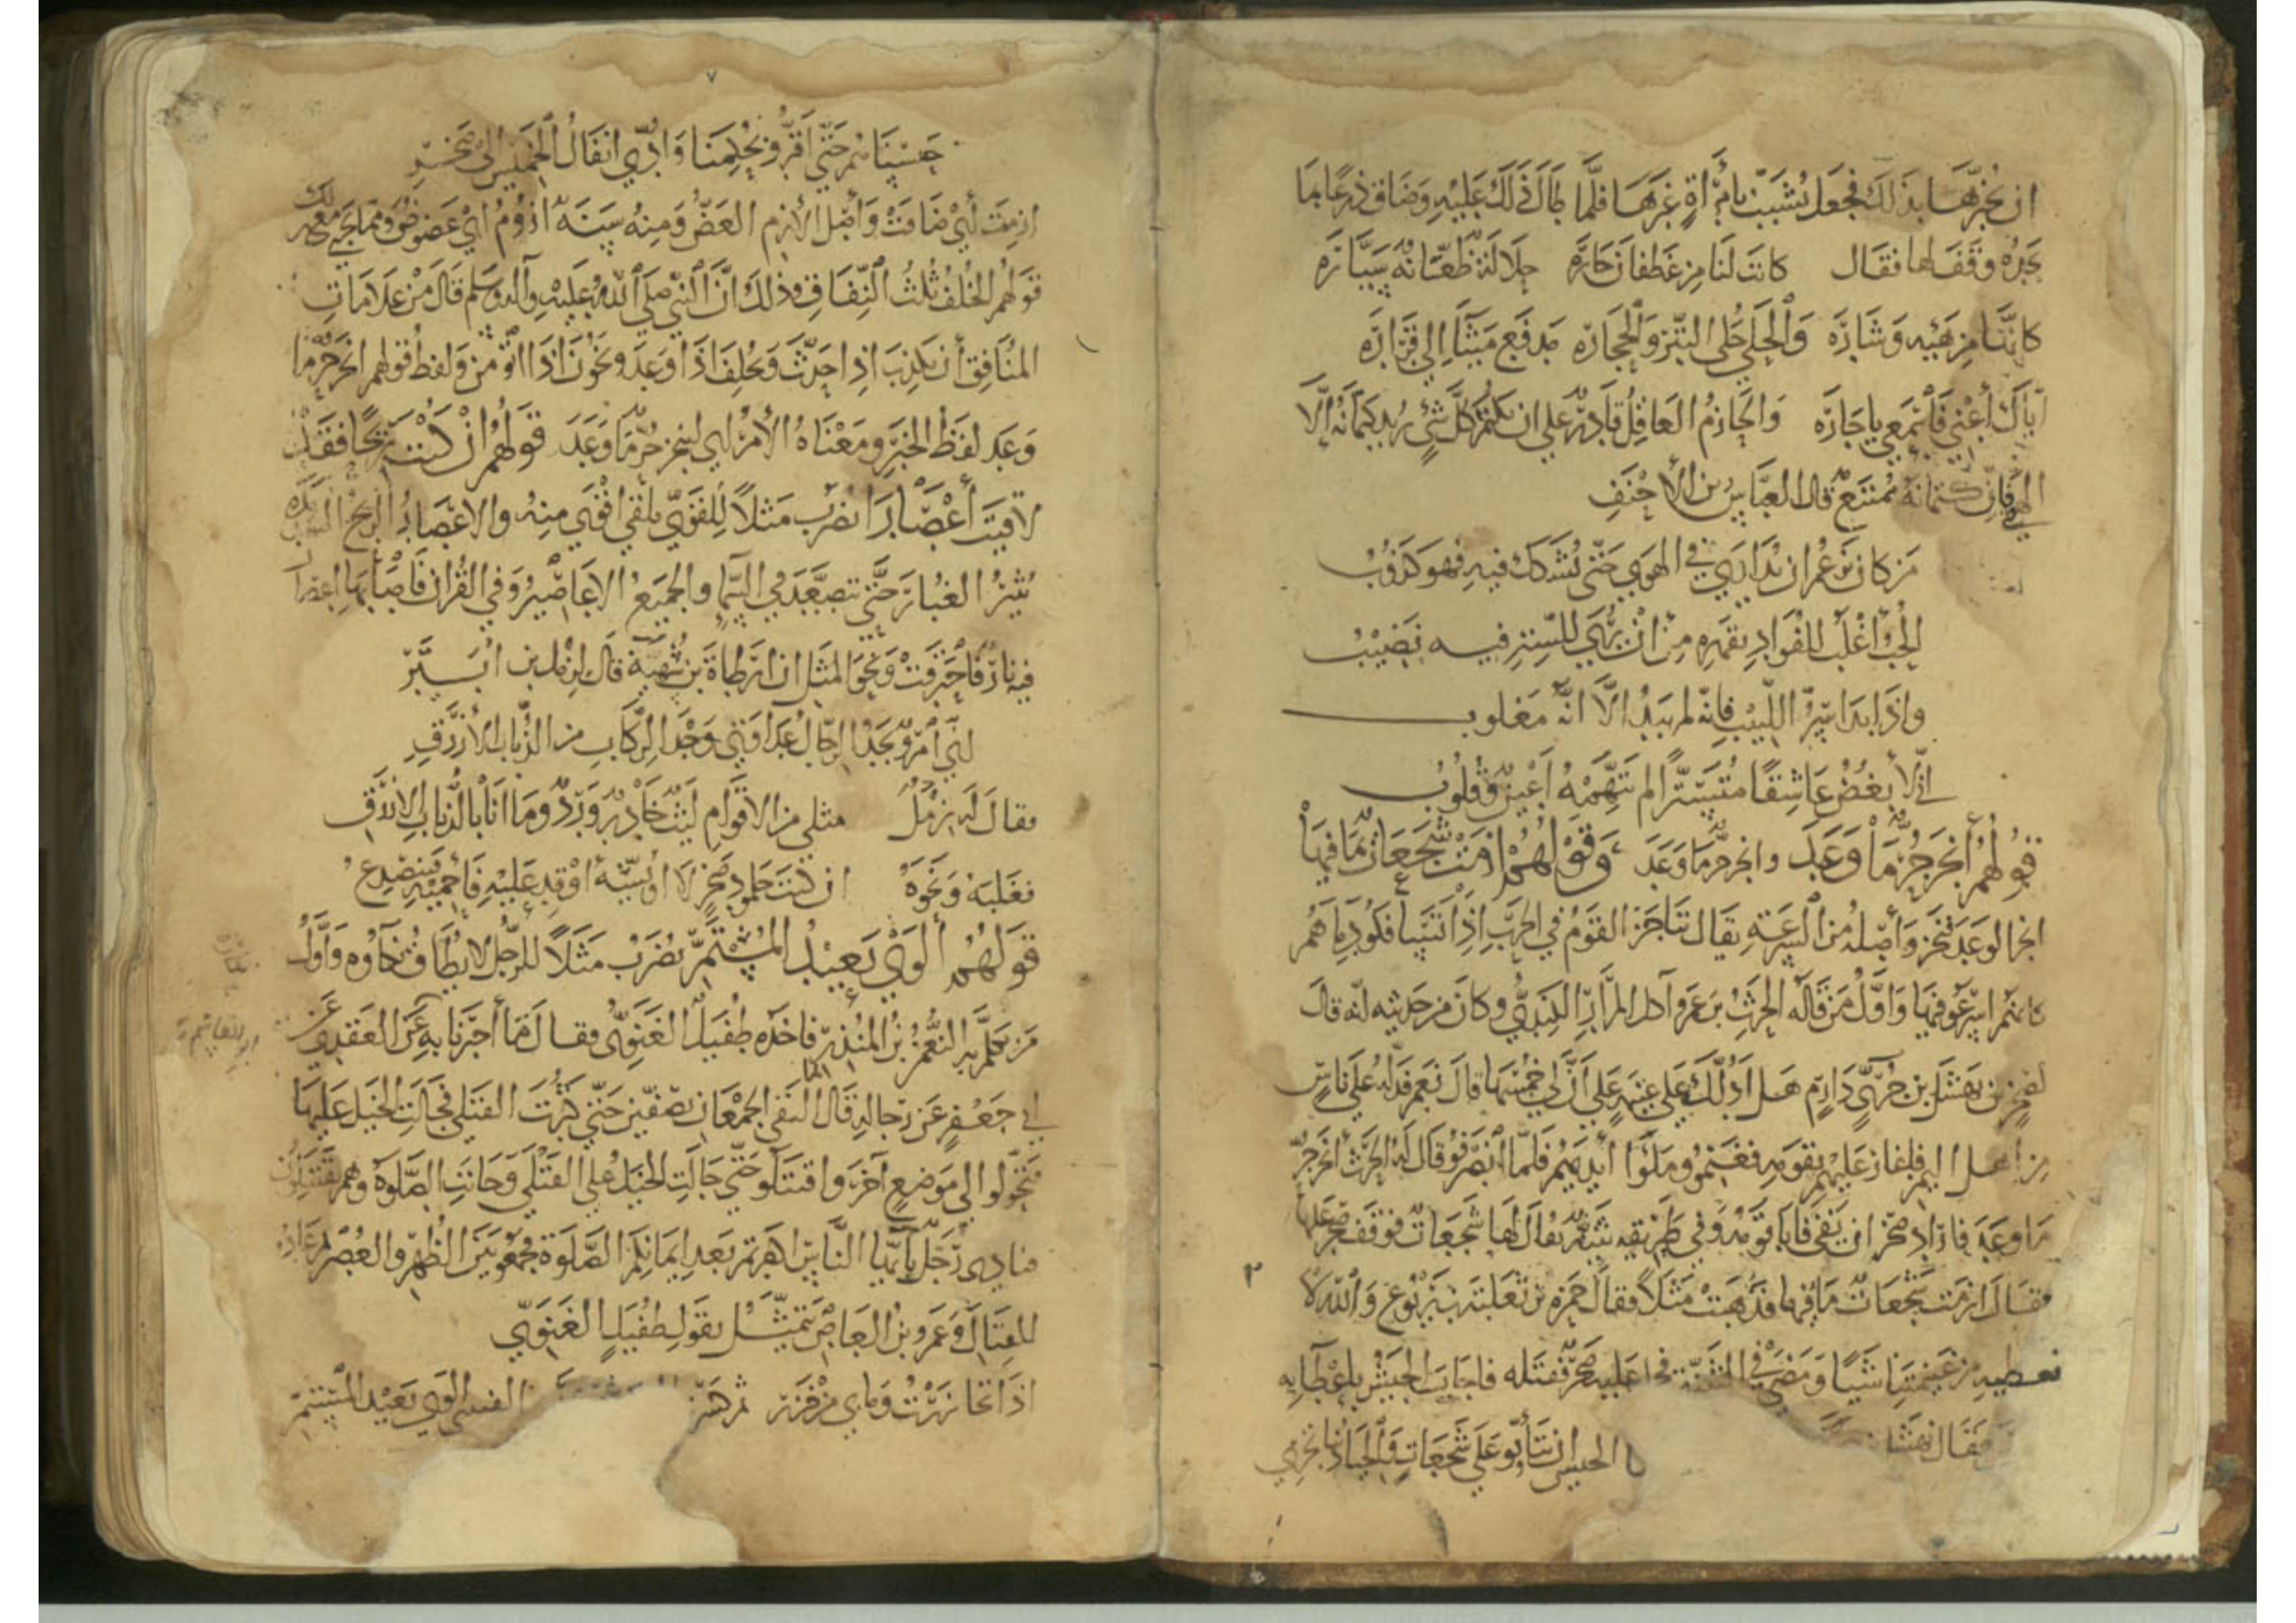 ان يخبرها بذلك فجعل يشبب بامرأة غيرها فلما طال ذلك عليه وضاق ذرعا بما
يجده وقف لها فقال كانت لنا من غطفان جاره حلالة ظعانة سياره
كانها من هيئه وشاره والحلي حلي التبر والحجاره مدفع ميثاء الى قراره
اياك أعني فاسمعي يا جاره والحازم العاقل قادر على ان يكتم كل شيء يريد كتمانه إلا
الهوى فان كتمانه ممتنع قال العباس بن الأحنف
من كان يزعم ان يداري في الهوى حتى يشكك فيه فهو كذوب
الحب أغلب للفؤاد بقهره من أن يرى للستر فيه نصيب
واذا بدا سر اللبيب فانه لم يبد الا انه مغلوب
اني لأبغض عاشقا متسترا لم تتهمه أعين وقلوب
قولهم أنجز حر ما وعد وانجز حر ما وعد وقولهم ازمت شجعات بما فيها
انجز الوعد فنجز وأصله من السرعة يقال تناجز القوم في الحرب إذا تسافكوا دماءهم
كانهم اسرعوا فيها وأول من قاله الحرث بن عمرو آكل المرار الكندي وكان من حديثه انه قال
لصخر بن نهشل بن دارم هل أدلك على غنيمة على أن لي خمسها قال نعم فدله على ناس
من اهل اليمن فاغار عليهم بقومه فغنموا وملؤا أيديهم فلما انصرفوا قال له الحرث أنجز حر
ما وعد فاراد صخر ان يفي فابا قومه وفي طريقه ثنية يقال لها شجعات فوقف صخر عليها
فقال ازمت شجعات بما فيها فذهبت مثلا فقال حمزة بن ثعلبة بن يربوع والله لا
نعطيه من غنيمتنا شيئا ومضى في الثنية فحمل عليه صخر فقتله فاجاب الجيش باعطايه
فقال نهشل الجيش ان يتأبوا على شجعات والجياد بنا تجري
٧
حبسناهم حتى أقروا بحكمنا وادي انفال الخميس الى صخر
ازمت أي ضاقت وأصل الأزم العض ومنه سنة ازوم اي عضوض ومما يجري مع ذلك
قولهم الخلف ثلث النفاق وذلك ان النبي صلى الله عليه وآله وسلم قال من علامات
المنافق أن يكذب اذا حدث ويخلف اذا وعد ويخون اذا اؤتمن ولفظ قولهم انجز حر ما
وعد لفظ الخبر ومعناه الأمر اي لينجز حر ما وعد قولهم ان كنت ريحا فقد
لاقيت أعصارا يضرب مثلا للقوي يلقى اقوى منه والاعصار الريح الشديدة
تثير الغبار حتى تتصعد في السماء والجميع الاعاصير وفي القران فاصابها اعصار
فيه نار فاحترقت ونحو المثل ان ارطاة بن سهية قال لزمل بن ابير
اني امرؤ تجد الرجال عداوتي وجد الركاب من الذباب الأزرق
فقال له زمل مثلي من الاقوام ليث خادر ورد وما انا بالذباب الازرق
فغلبه ونحوه ان كنت جلمود صخر لا اؤبسه أوقد عليه فأحميه فينصدع
قولهم ألوى بعيد المستمر يضرب مثلا للرجل لا يطاق نكاوه وأول
من تكلم به النعمن بن المنذر فاخذه طفيل الغنوي فقال أخبرنا به عن العقدي عن
ابي جعفر عن رجاله قال التقى الجمعان بصفين حتى كثرت القتلى فجالت الخيل عليها
فتحولوا الى موضع آخر واقتتلوا حتى جالت الخيل على القتلى وحانت الصلوة وهم يقتتلون
فنادى رجل يا أيها الناس اكفرتم بعد ايمانكم الصلوة فجمعوا بين الظهر والعصر ثم عادوا
للقتال وعمرو بن العاص يتمثل بقول طفيل الغنوي
اذا تخازرت وما بي من خزر ثم كسرت ألوى بعيد المستمر